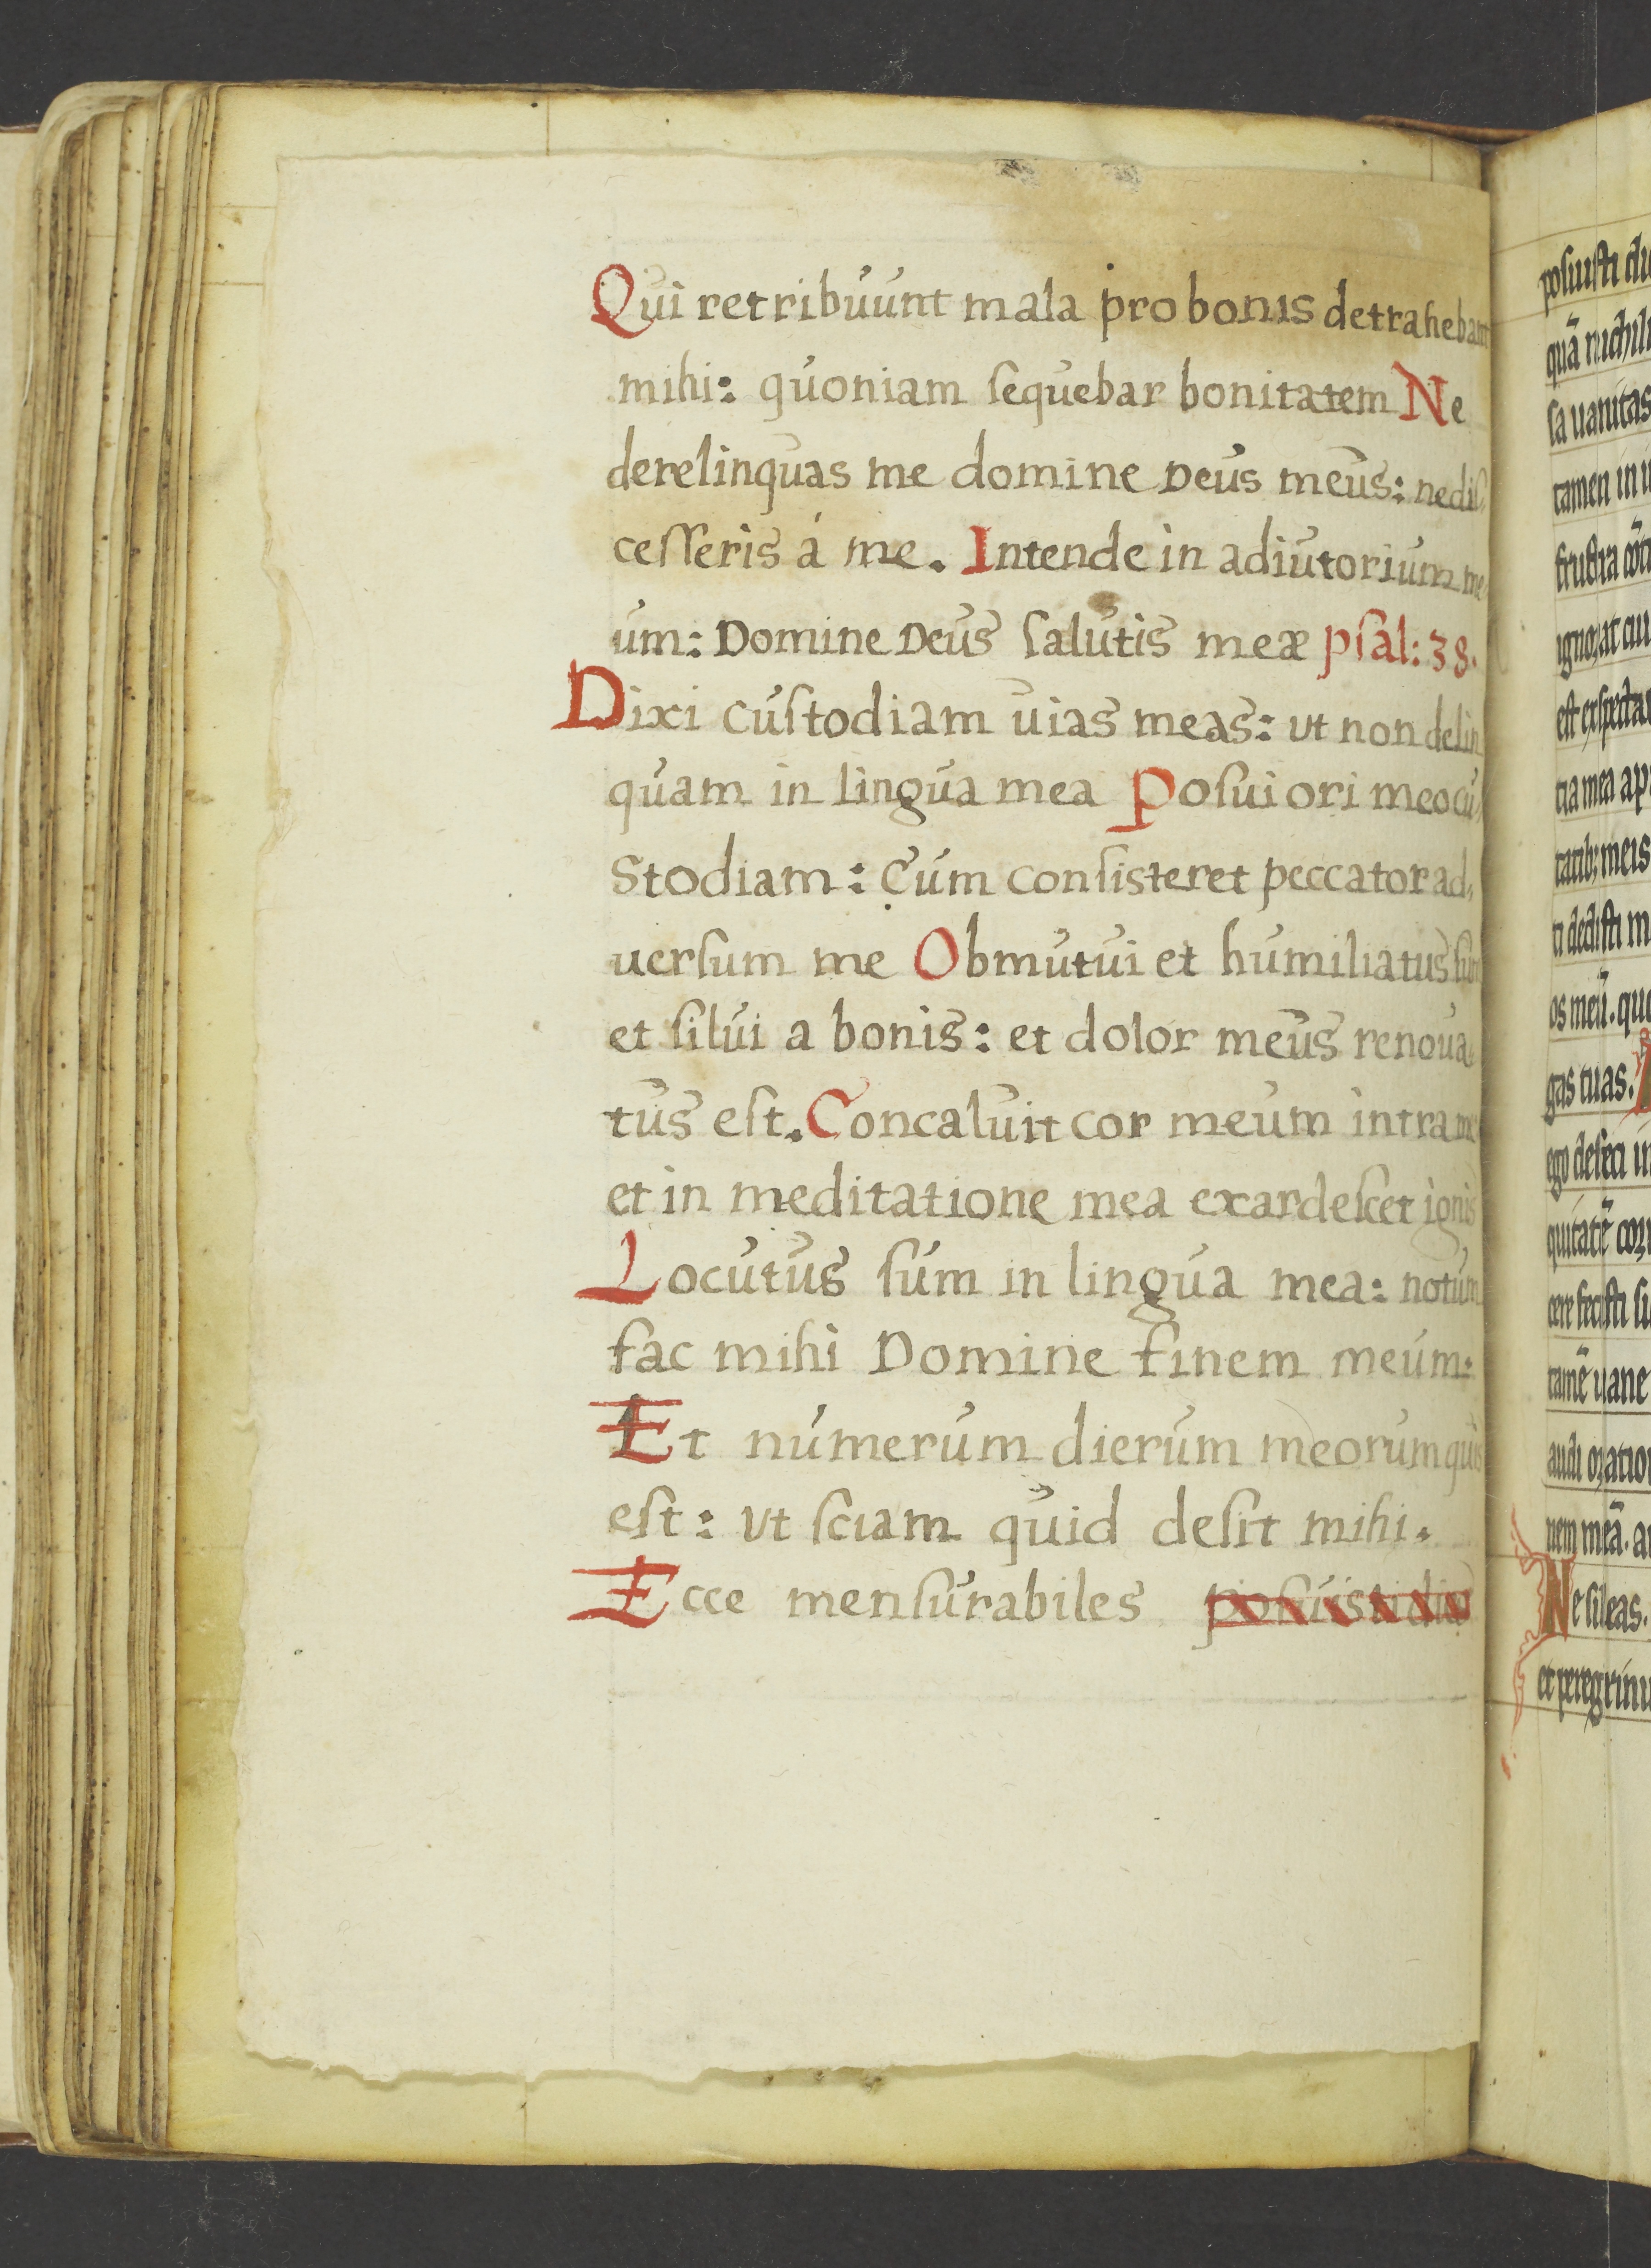 Qui retribuunt mala pro bonis detrahebant
mihi: quoniam ſequebar bonitatem Ne
derelinquas me domine Deus meus: ne diſ,
ceſſeris á me. Intende in adiutorium me,
um: Domine Deus ſalutis meæ pſal: 38.
Dixi cuſtodiam uias meas: ut non delin
quam in lingua mea Poſui ori meo cu,
Stodiam: Cum conſisteret peccator ad,
uerſum me Obmutui et humiliatus ſum
et ſilui a bonis: et dolor meus renoua,
tus eſt. Concaluit cor meum intra me
et in meditatione mea exardeſcet ignis
Locutus ſum in lingua mea: notum
fac mihi Domine finem meum:
Et numerum dierum meorum quis
eſt: ut ſciam quid deſit mihi.
Ecce menſurabiles poſuisti dies
poſuiſti di
quā nichil
ſa uanitas
tamen in
fruſtra cō
ignorat cui
eſt exſpecta
tia mea ap
tatib; meis
ti dediſti m
os meū. quo
gas tuas.
ego defeci in
quitatē cor
cere feciſti ſi
tamē uane
audi oratio
nem meā. a
Ne ſileas.
et peregrinu